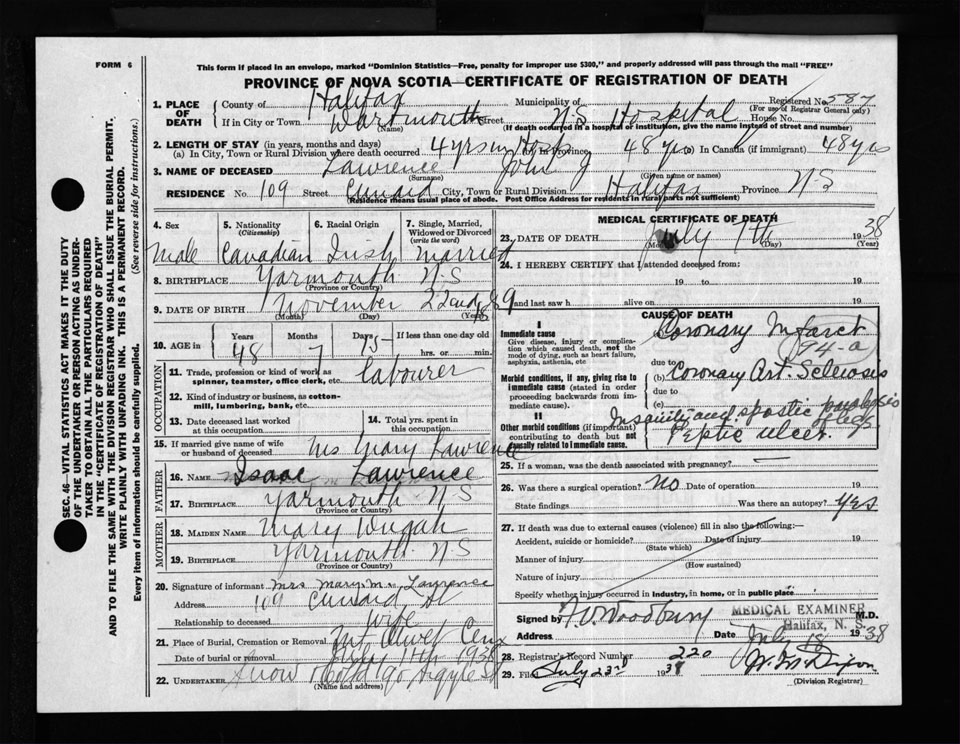 FORM 6
This form if placed in an envelope, marked "Dominion Statistics—Free, penalty for improper use $300," and properly addressed will pass through the mail "FREE"
PROVINCE OF NOVA SCOTIA—CERTIFICATE OF REGISTRATION OF DEATH
Registered No. 587
(For use of Registrar General only)
1. PLACE OF DEATH
County of Halifax Municipality of
If in City or Town Dartmouth Street N.S. Hospital House No.
(Name) (If death occurred in a hospital or institution, give the name instead of street and number)
2. LENGTH OF STAY (in years, months and days)
(a) In City, Town or Rural Division where death occurred 4 yrs in Hosp (b) In Province 48 yrs (c) In Canada (if immigrant) 48 yrs
3. NAME OF DECEASED Lawrence John J
(Surname) (Given name or names)
RESIDENCE No. 109 Street Cunard City, Town or Rural Division Halifax Province N S
(Residence means usual place of abode. Post Office Address for residents in rural parts not sufficient)
4. Sex
Male
5. Nationality
(Citizenship)
Canadian
6. Racial Origin
Irish
7. Single, Married, Widowed or Divorced
(write the word)
Married
8. BIRTHPLACE Yarmouth N-S
(Province or Country)
9. DATE OF BIRTH November 22nd 1889
(Month) (Day) (Year)
10. AGE in Years Months Days If less than one day old
48 7 15 hrs. or min.
OCCUPATION
11. Trade, profession or kind of work as spinner, teamster, office clerk, etc. Labourer
12. Kind of industry or business, as cotton-mill, lumbering, bank, etc.
13. Date deceased last worked at this occupation
14. Total yrs. spent in this occupation
15. If married give name of wife or husband of deceased Mrs Mary Lawrence
FATHER
16. NAME Isaac Lawrence
17. BIRTHPLACE Yarmouth N S
(Province or Country)
MOTHER
18. MAIDEN NAME Mary Dugah
19. BIRTHPLACE Yarmouth N.S
(Province or Country)
20. Signature of informant Mrs Mary M. Lawrence
Address 109 Cunard St
Relationship to deceased wife
21. Place of Burial, Cremation or Removal Mt Olivet Cem
Date of burial or removal July 11th 1938
22. UNDERTAKER Snow & Co Ltd 90 Argyle St
(Name and address)
MEDICAL CERTIFICATE OF DEATH
23. DATE OF DEATH July 7th 1938
(Month) (Day) (Year)
24. I HEREBY CERTIFY that I attended deceased from:
19 to 19
and last saw h alive on 19
CAUSE OF DEATH
I
Immediate cause
Give disease, injury or complication which caused death, not the mode of dying, such as heart failure, asphyxia, asthenia, etc
Coronary Infarct
94-a
due to
Morbid conditions, if any, giving rise to immediate cause (stated in order proceeding backwards from immediate cause).
(b) Coronary Art. Sclerosis
due to
(c)
II
Other morbid conditions (if important) contributing to death but not causally related to immediate cause
Insanity and spastic paralysis legs.
Peptic ulcer.
25. If a woman, was the death associated with pregnancy? —
26. Was there a surgical operation? No Date of operation 19
State findings Was there an autopsy? Yes
27. If death was due to external causes (violence) fill in also the following:—
Accident, suicide or homicide? Date of injury 19
(State which)
Manner of injury
(How sustained)
Nature of injury
Specify whether injury occurred in industry, in home, or in public place
Signed by F.V. Woodbury M.D.
MEDICAL EXAMINER
Halifax, N. S.
Address Date July 18 1938
28. Registrar's Record Number 220
29. Filed July 23rd 1938
(Division Registrar)
SEC. 46—VITAL STATISTICS ACT MAKES IT THE DUTY OF THE UNDERTAKER OR PERSON ACTING AS UNDERTAKER TO OBTAIN ALL THE PARTICULARS REQUIRED IN THE "CERTIFICATE OF REGISTRATION OF DEATH"
AND TO FILE THE SAME WITH THE DIVISION REGISTRAR WHO SHALL ISSUE THE BURIAL PERMIT.
WRITE PLAINLY WITH UNFADING INK. THIS IS A PERMANENT RECORD.
Every item of information should be carefully supplied. (See reverse side for instructions.)